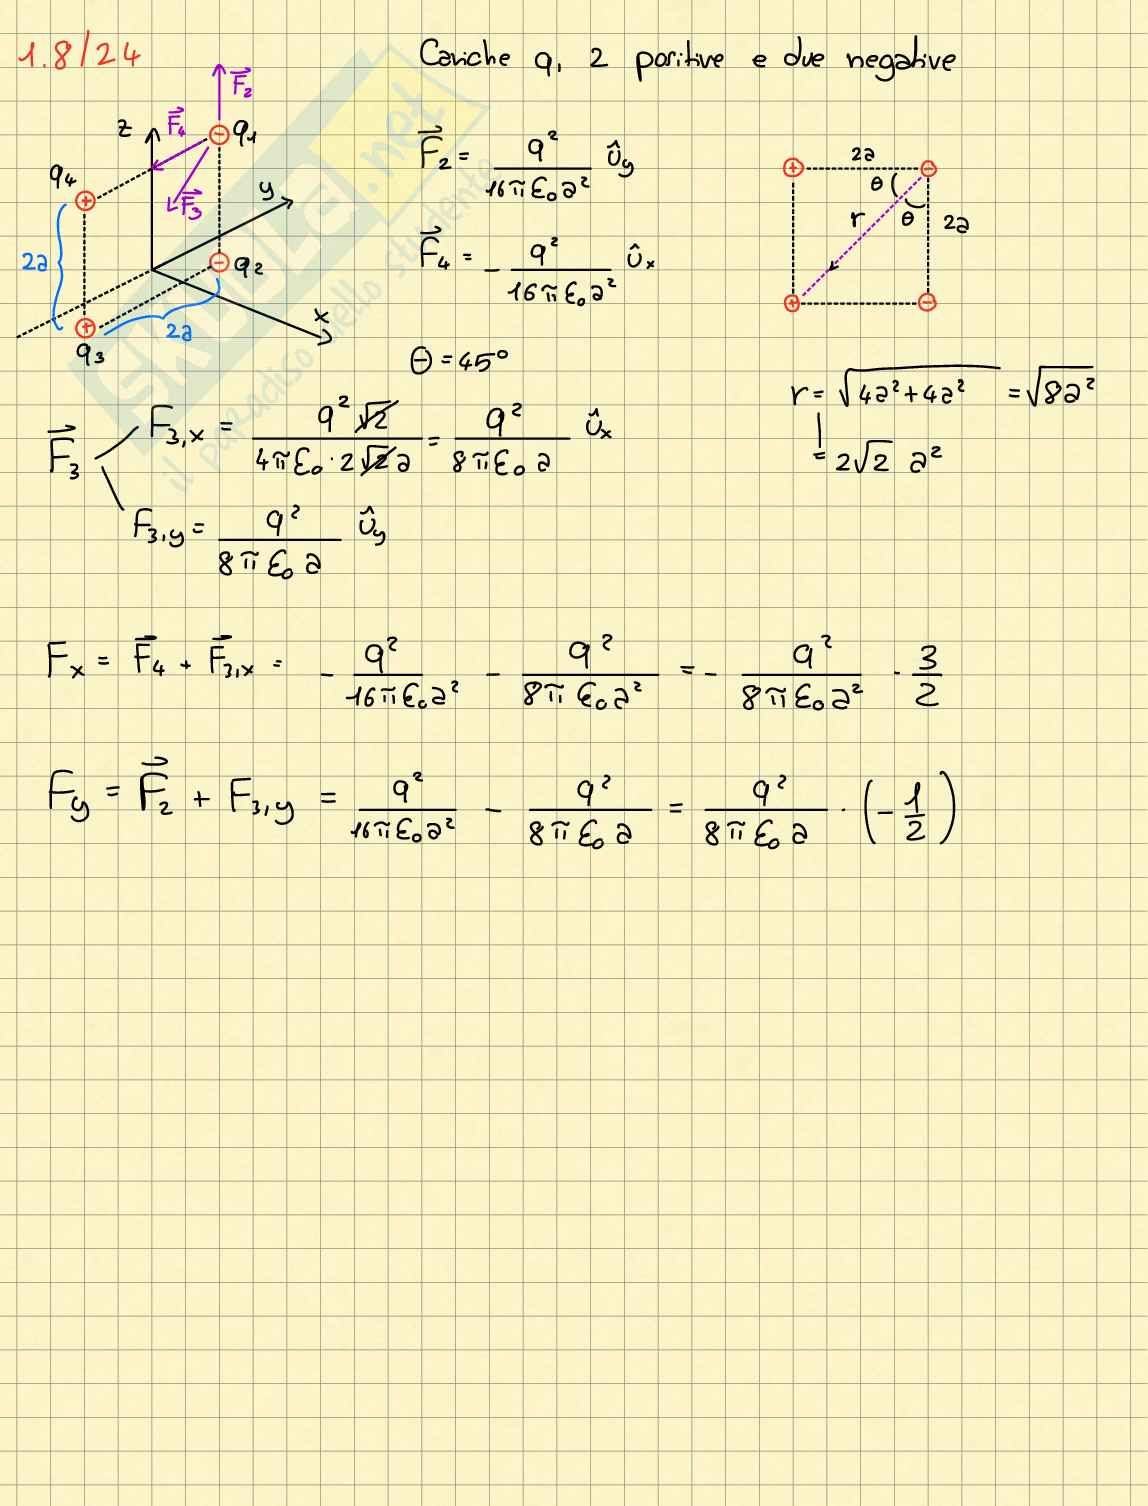 1.8/24
Cariche q, 2 positive e due negative
F₂
F₄
z
q₁
F₃
q₄
y
2a
q₂
x
2a
q₃
F₂ = q² / 16πε₀a² û_y
F₄ = - q² / 16πε₀a² û_x
2a
θ
r
θ
2a
θ = 45°
r = √4a²+4a² = √8a²
= 2√2 a²
F₃
F₃,ₓ = q² √2 / 4πε₀ · 2√2 a = q² / 8πε₀ a û_x
F₃,y = q² / 8πε₀ a û_y
Fₓ = F₄ + F₃,ₓ = - q² / 16πε₀a² - q² / 8πε₀a² = - q² / 8πε₀a² · 3/2
F_y = F₂ + F₃,y = q² / 16πε₀a² - q² / 8πε₀ a = q² / 8πε₀ a · (- 1/2)
SKUOLA.net
il paradiso dello studente